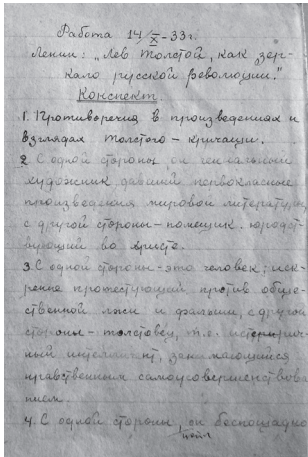 Работа 14/X-33г.
Ленин: „Лев Толстой, как зер-
кало русской революции."
Конспект
1. Противоречия в произведениях и
взглядах Толстого – кричащи.
2. С одной стороны, он гениальный
художник давший первокласные
произведения мировой литературы,
с другой стороны – помещик, юродст-
вующий во христе.
3. С одной стороны – это человек, иск-
ренно протестующий против обще-
ственной лжи и фальши, с другой
стороны – толстовец, т.е. истерич-
ный
нравственным самоусовершенствов
нием.
4. С одной стороны, он беспощадно